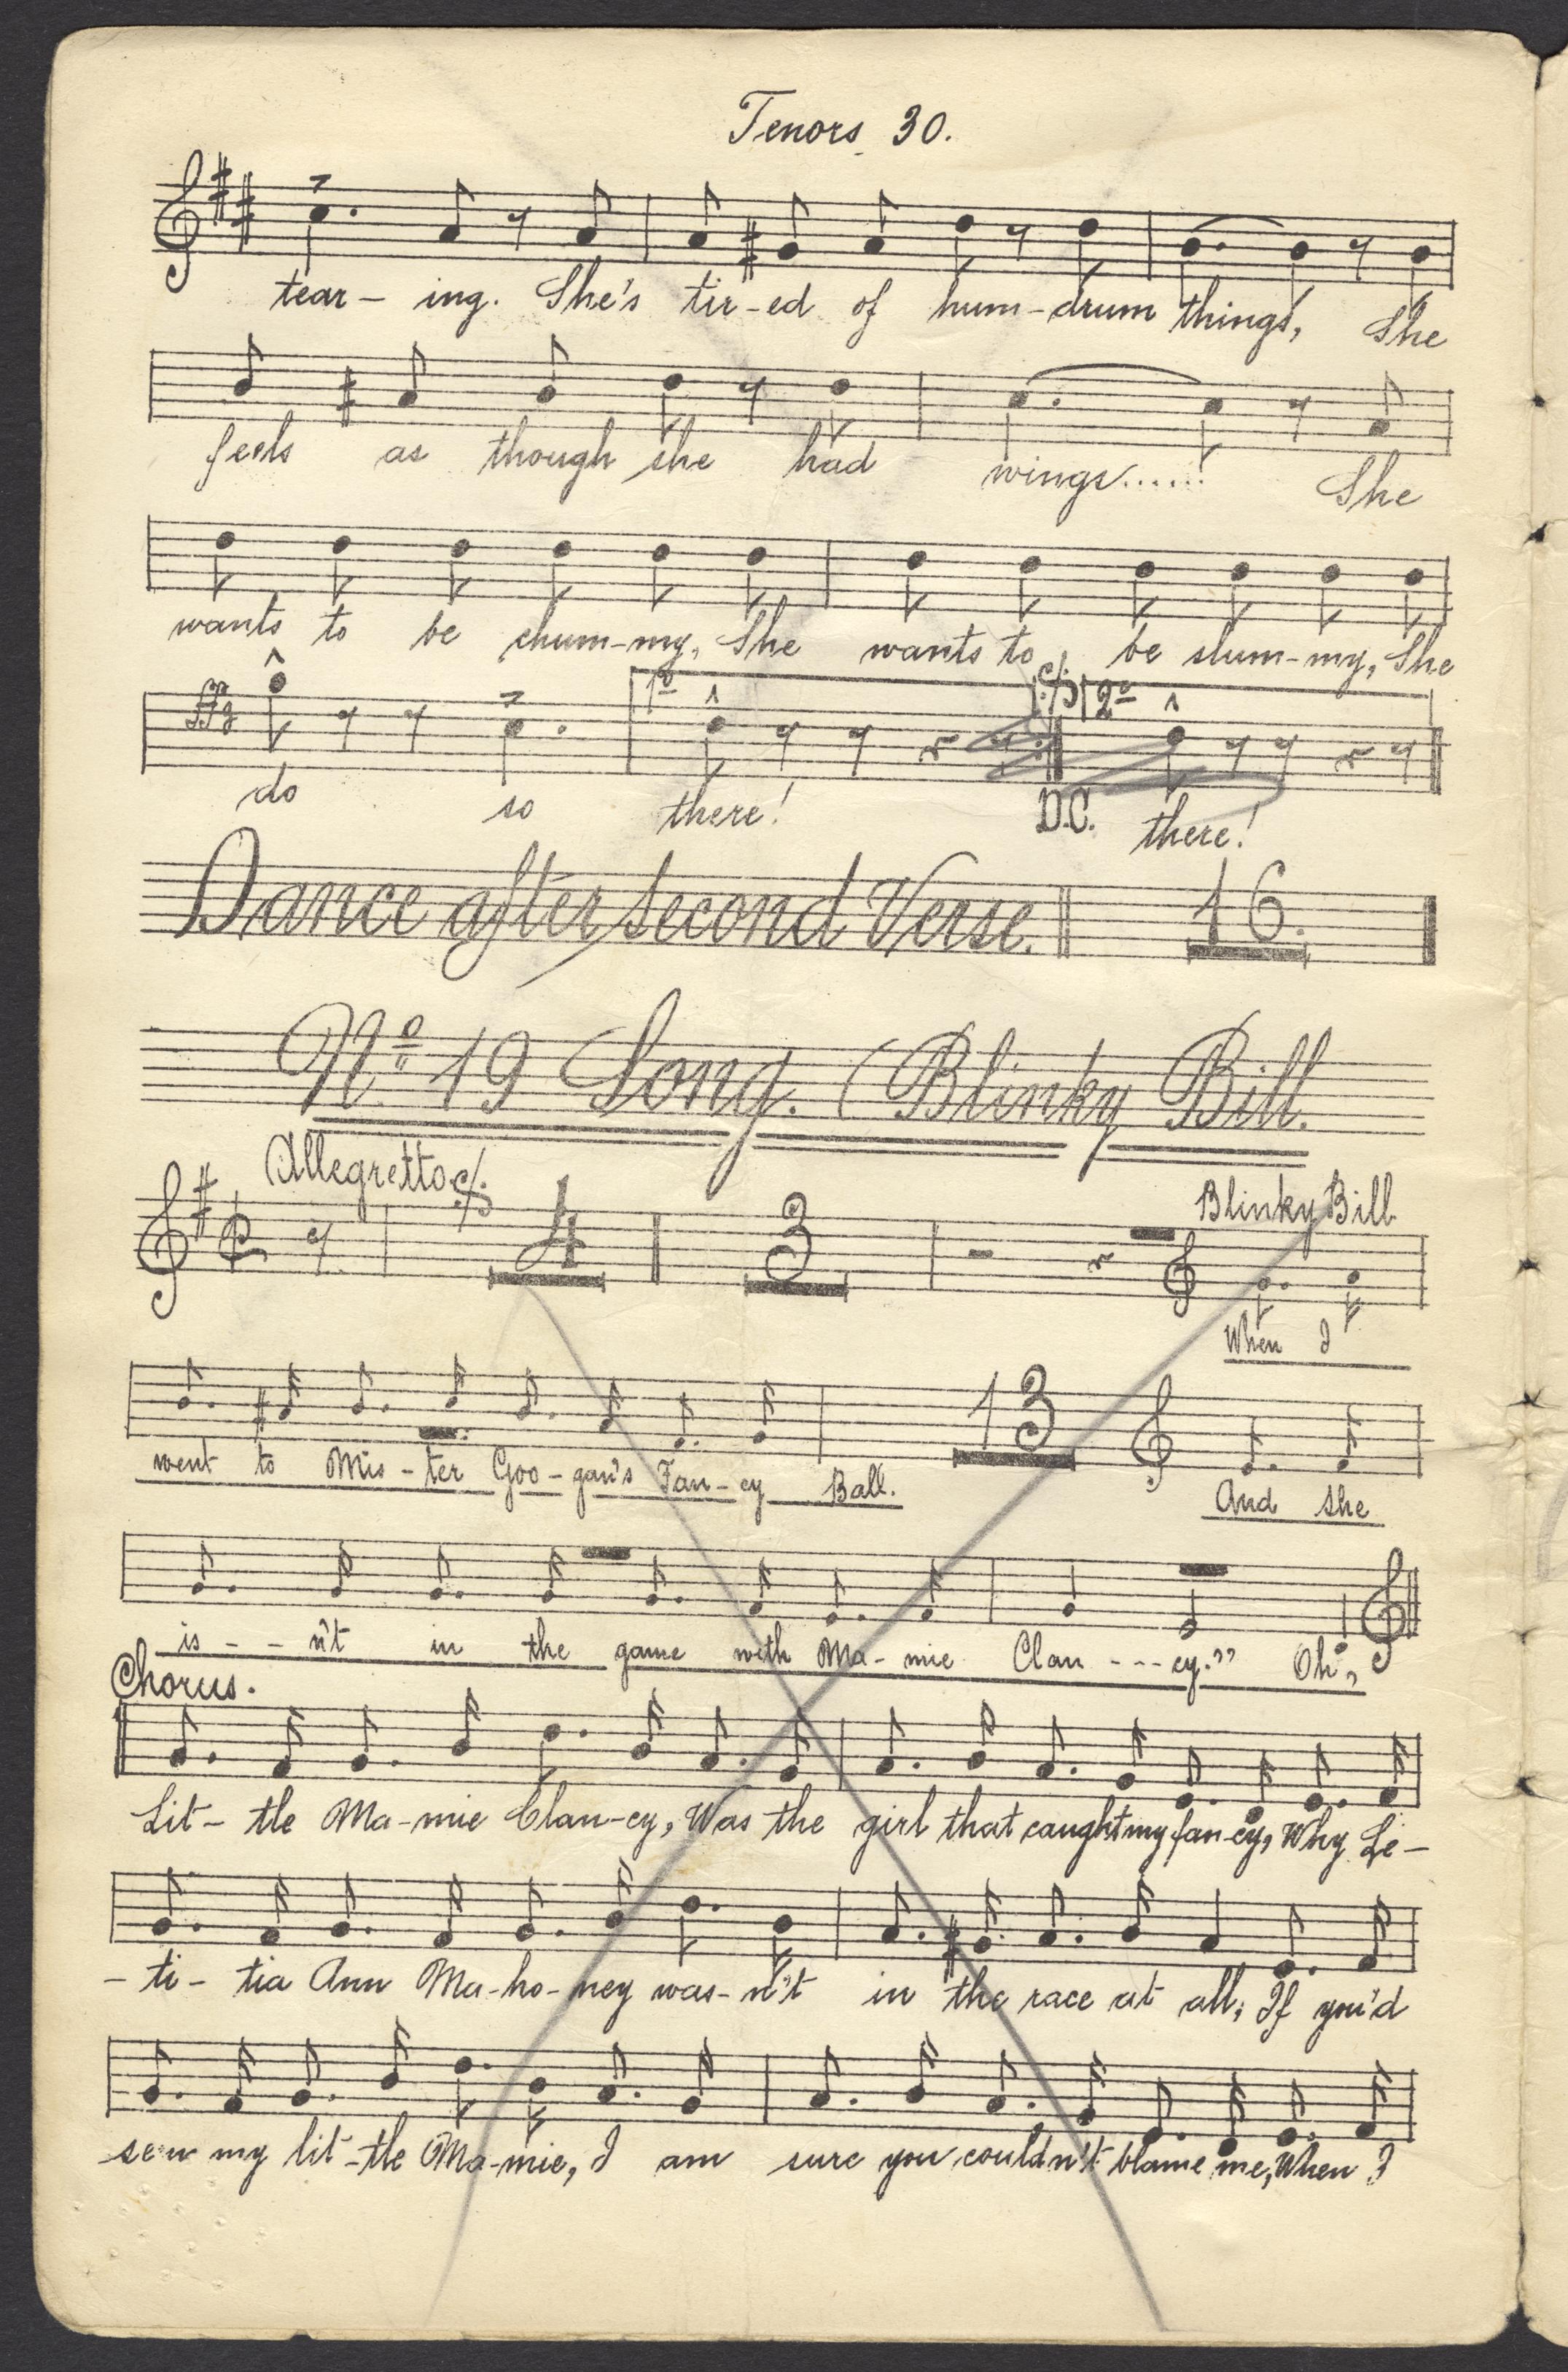 Tenors 30.
tear- ing. She's tir-ed of hum-drum things, She
feels as though she had wings...... She
wants to be chum-my, She wants to be slum-my, She
1º 2º
do so there! D.C. there!
Dance after second Verse. 16.
Nº 19 Song. (Blinky Bill.
Allegretto 4 3 Blinky Bill
When I
went to Mis-ter Goo-gan's Fan-cy Ball. 13 And she
is--n't in the game with Ma-mie Clan---cy." Oh,
Chorus.
Lit- tle Ma-mie Clan-cy, Was the girl that caught my fan-cy, Why Le-
-ti- tia Ann Ma-ho-ney was-n't in the race at all; If you'd
seen my lit-tle Ma-mie, I am sure you couldn't blame me, When I